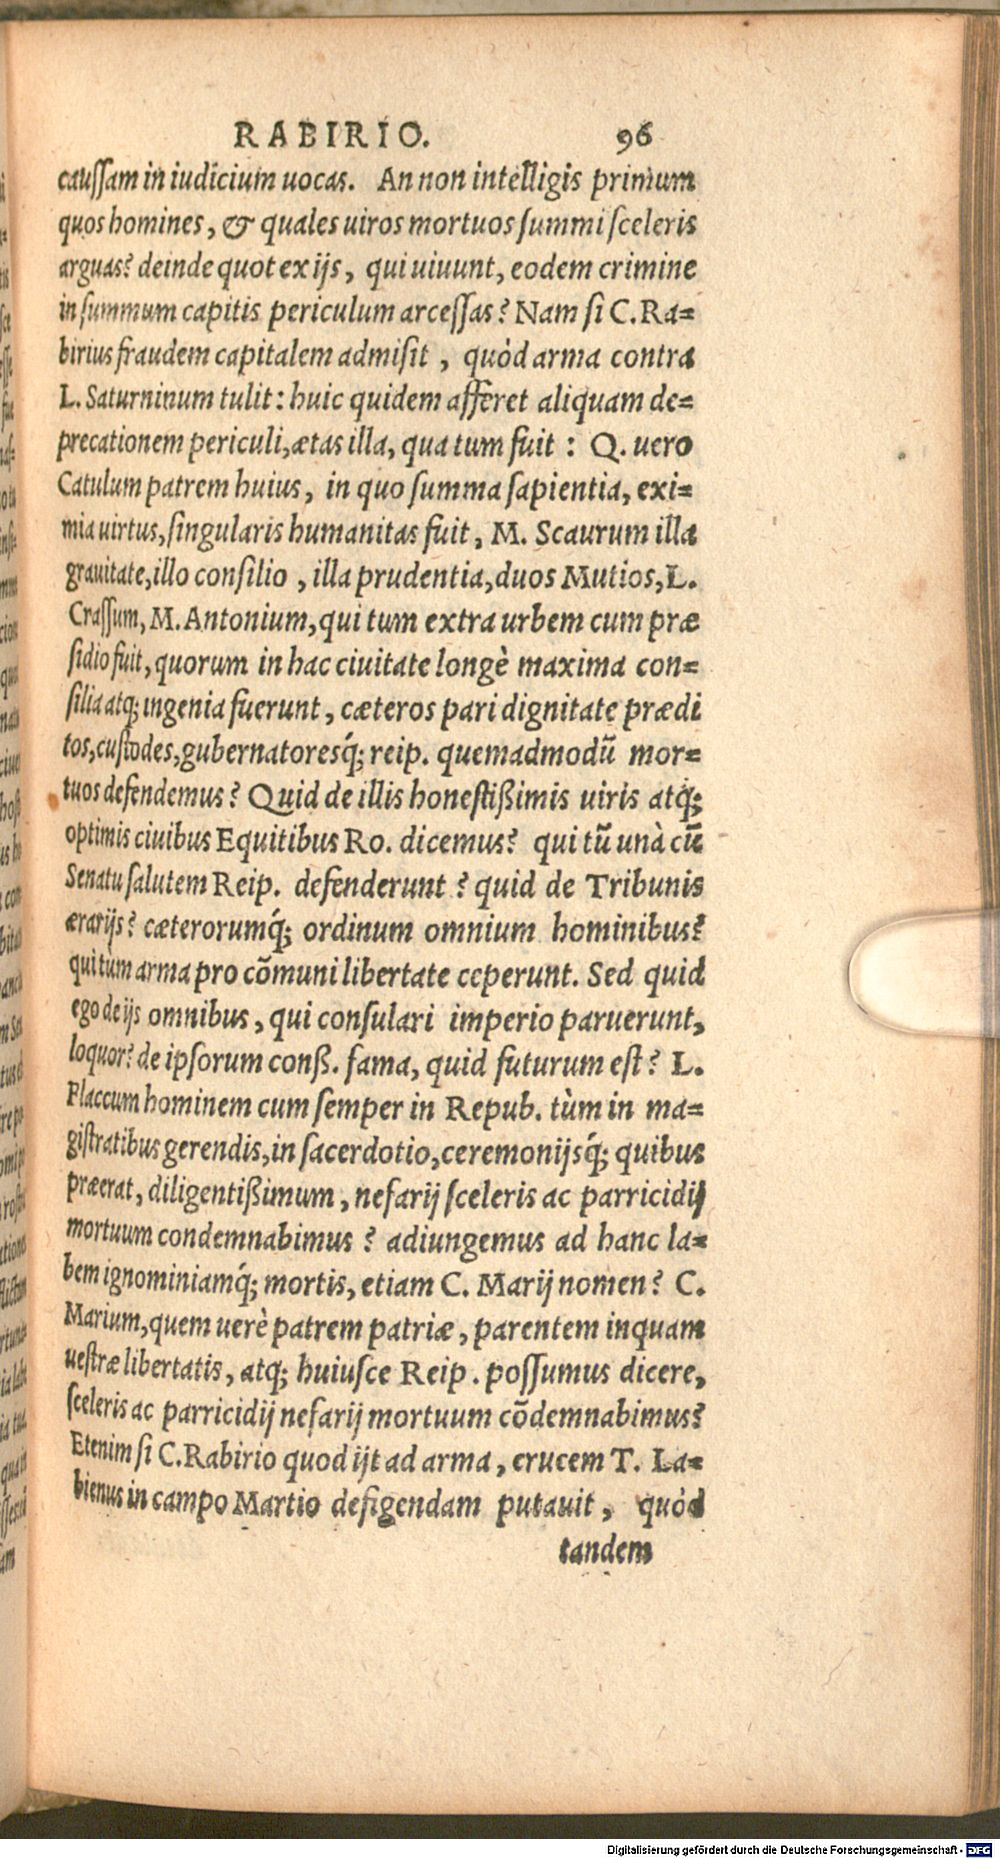 RABIRIO. 96
cauſſam in iudicium uocas. An non intelligis primum
quos homines, & quales uiros mortuos ſummi ſceleris
arguas? deinde quot ex ijs, qui uiuunt, eodem crimine
in ſummum capitis periculum arceſſas? Nam ſi C. Ra=
birius fraudem capitalem admiſit, quòd arma contra
L. Saturninum tulit: huic quidem afferet aliquam de=
precationem periculi, ætas illa, qua tum fuit: Q. uero
Catulum patrem huius, in quo ſumma ſapientia, exi=
mia uirtus, ſingularis humanitas fuit, M. Scaurum illa
grauitate, illo conſilio, illa prudentia, duos Mutios, L.
Craſſum, M. Antonium, qui tum extra urbem cum præ
ſidio fuit, quorum in hac ciuitate longè maxima con=
ſilia atq; ingenia fuerunt, cæteros pari dignitate prædi
tos, cuſtodes, gubernatoresq́; reip. quemadmodũ mor=
tuos defendemus? Quid de illis honeſtißimis uiris atq;
optimis ciuibus Equitibus Ro. dicemus? qui tũ unà cũ
Senatu ſalutem Reip. defenderunt? quid de Tribunis
ærarijs? cæterorumq́; ordinum omnium hominibus?
qui tùm arma pro cõmuni libertate ceperunt. Sed quid
ego de ijs omnibus, qui conſulari imperio paruerunt,
loquor? de ipſorum conß. fama, quid futurum eſt? L.
Flaccum hominem cum ſemper in Repub. tùm in ma=
giſtratibus gerendis, in ſacerdotio, ceremonijsq́; quibus
præerat, diligentißimum, nefarij ſceleris ac parricidij
mortuum condemnabimus? adiungemus ad hanc la=
bem ignominiamq́; mortis, etiam C. Marij nomen? C.
Marium, quem uerè patrem patriæ, parentem inquam
ueſtræ libertatis, atq; huiuſce Reip. poſſumus dicere,
ſceleris ac parricidij nefarij mortuum cõdemnabimus?
Etenim ſi C. Rabirio quod ijt ad arma, crucem T. La=
bienus in campo Martio defigendam putauit, quòd
tandem
Digitalisierung gefördert durch die Deutsche Forschungsgemeinschaft - DFG